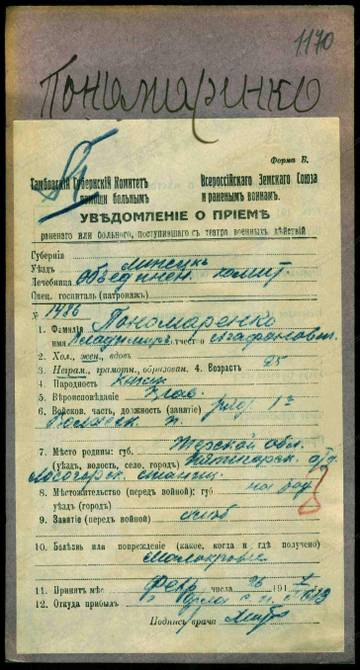 1170
Пономаринко
Форма Б.
Тамбовскій Губернскій Комитетъ Всероссійскаго Земскаго Союза
помощи больнымъ и раненымъ воинамъ.
УВѢДОМЛЕНІЕ О ПРІЕМѢ
раненаго или больного, поступившаго съ театра военныхъ дѣйствій
Губернія
Уѣздъ Липецкъ
Лечебница Объединен. комит.
Спец. госпиталь (патронажъ)
№ 1486
1. Фамилія Пономаренко
имя Владимиръ отчество Агафонович
2. Хол., жен., вдовъ
3. Неграм., грамотн., образован. 4. Возрастъ 25
4. Народность
5. Вѣроисповѣданіе
6. Войсков. часть, должность (занятіе) ряд. 1й
7. Мѣсто родины: губ. Терской обл.
(уѣздъ, волость, село, городъ)
8. Мѣстожительство (передъ войной): губ
уѣздъ (городъ)
9. Занятіе (передъ войной)
10. Болѣзнь или поврежденіе (какое, когда и гдѣ получено)
Малокровіе
11. Принятъ мѣс. Февр числа 26 191
12. Откуда прибылъ
Подпись врача